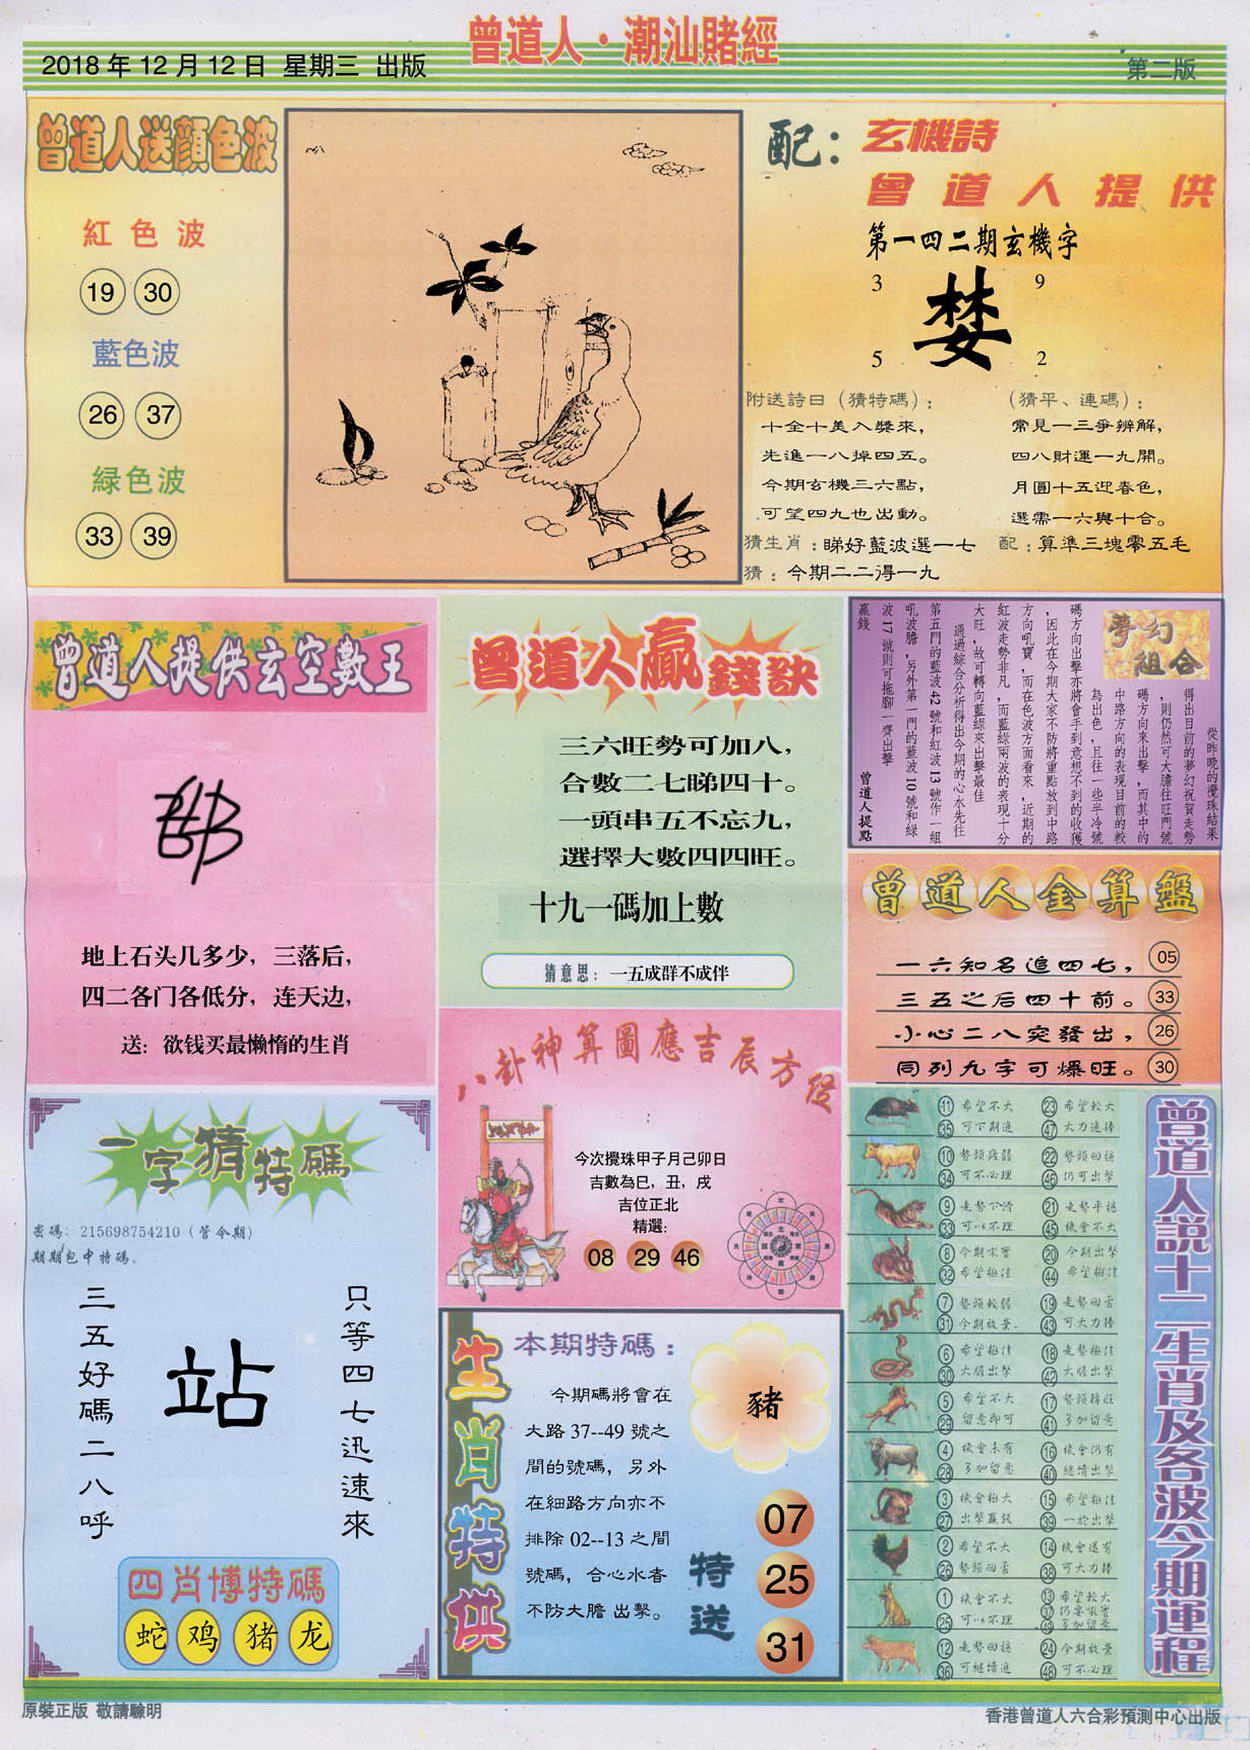 曾道人·潮汕賭經
2018年12月12日 星期三 出版
第二版
曾道人送顏色波
紅色波
19 30
藍色波
26 37
緑色波
33 39
配：
玄機詩
曾道人提供
第一四二期玄機字
3 9
婪
5 2
附送詩曰（猜特碼）：
十全十美入獎來，
先進一八掉四五。
今期玄機三六點，
可望四九也出動。
猜生肖：睇好藍波選一七
猜：今期二二得一九
（猜平、連碼）：
常見一三爭辨解，
四八財運一九開。
月圓十五迎春色，
選需一六與十合。
配：算準三塊零五毛
曾道人提供玄空數王
地上石头几多少，三落后，
四二各门各低分，连天边，
送：欲钱买最懒惰的生肖
曾道人贏錢訣
三六旺勢可加八，
合數二七睇四十。
一頭串五不忘九，
選擇大數四四旺。
十九一碼加上數
猜意思：一五成群不成伴
夢幻
組合
從昨晚的攪珠結果
得出目前的夢幻祝賀走勢
，則仍然可大膽往旺門號
碼方向來出擊，而其中的
中路方向的表現目前的較
為出色，且往一些半冷號
碼方向出擊亦將會手到意想不到的收獲
，因此在今期大家不防將重點放到中路
方向吼寶，而在色波方面看來，近期的
紅波走勢非凡，而藍綠兩波的表現十分
大旺，故可轉向藍綠來出擊最佳
通過綜合分析得出今期的心水先往
第五門的藍波42號和紅波13號作一組
吼波膽，另外第一門的藍波10號和綠
波17號則可拖腳一齊出擊
贏錢
曾道人提點
曾道人金算盤
一六知名追四七，05
三五之后四十前。33
小心二八突發出，26
同列九字可爆旺。30
八卦神算圖應吉辰方位
今次攪珠甲子月己卯日
吉數為巳，丑，戌
吉位正北
精選：
08 29 46
一字猜特碼
密碼：215698754210（管令期）
期期包中特碼。
三五好碼二八呼
站
只等四七迅速來
四肖博特碼
蛇 鸡 猪 龙
生肖特供
本期特碼：
今期碼將會在
大路37--49號之
間的號碼，另外
在細路方向亦不
排除02--13之間
號碼，合心水者
不防大膽出擊。
豬
特送
07
25
31
曾道人説十二生肖及各波今期運程
11 希望不大 23 希望較大
35 可下期進 47 大力進捧
10 22
34 可不必理 46 仍可出擊
9 21
33 可以不理 45 機會不大
8 20 今期出擊
32 希望極佳 44 希望極佳
7 勢頭較弱 19
31 今期放棄 43 可大力捧
6 希望極佳 18 走勢極佳
30 大膽出擊 42 大膽出擊
5 希望不大 17
29 留意即可 41 多加留意
4 機會未有 16 機會仍有
28 多加留意 40 繼續出擊
3 機會極大 15 希望極佳
27 39 一於出擊
2 希望不大 14 機會還有
26 38 可大力捧
1 機會不大 13 希望較大
25 可以不理 37
49 多加留意
12 24 今期放棄
36 可繼續進 48 可不必理
原裝正版 敬請驗明
香港曾道人六合彩預測中心出版